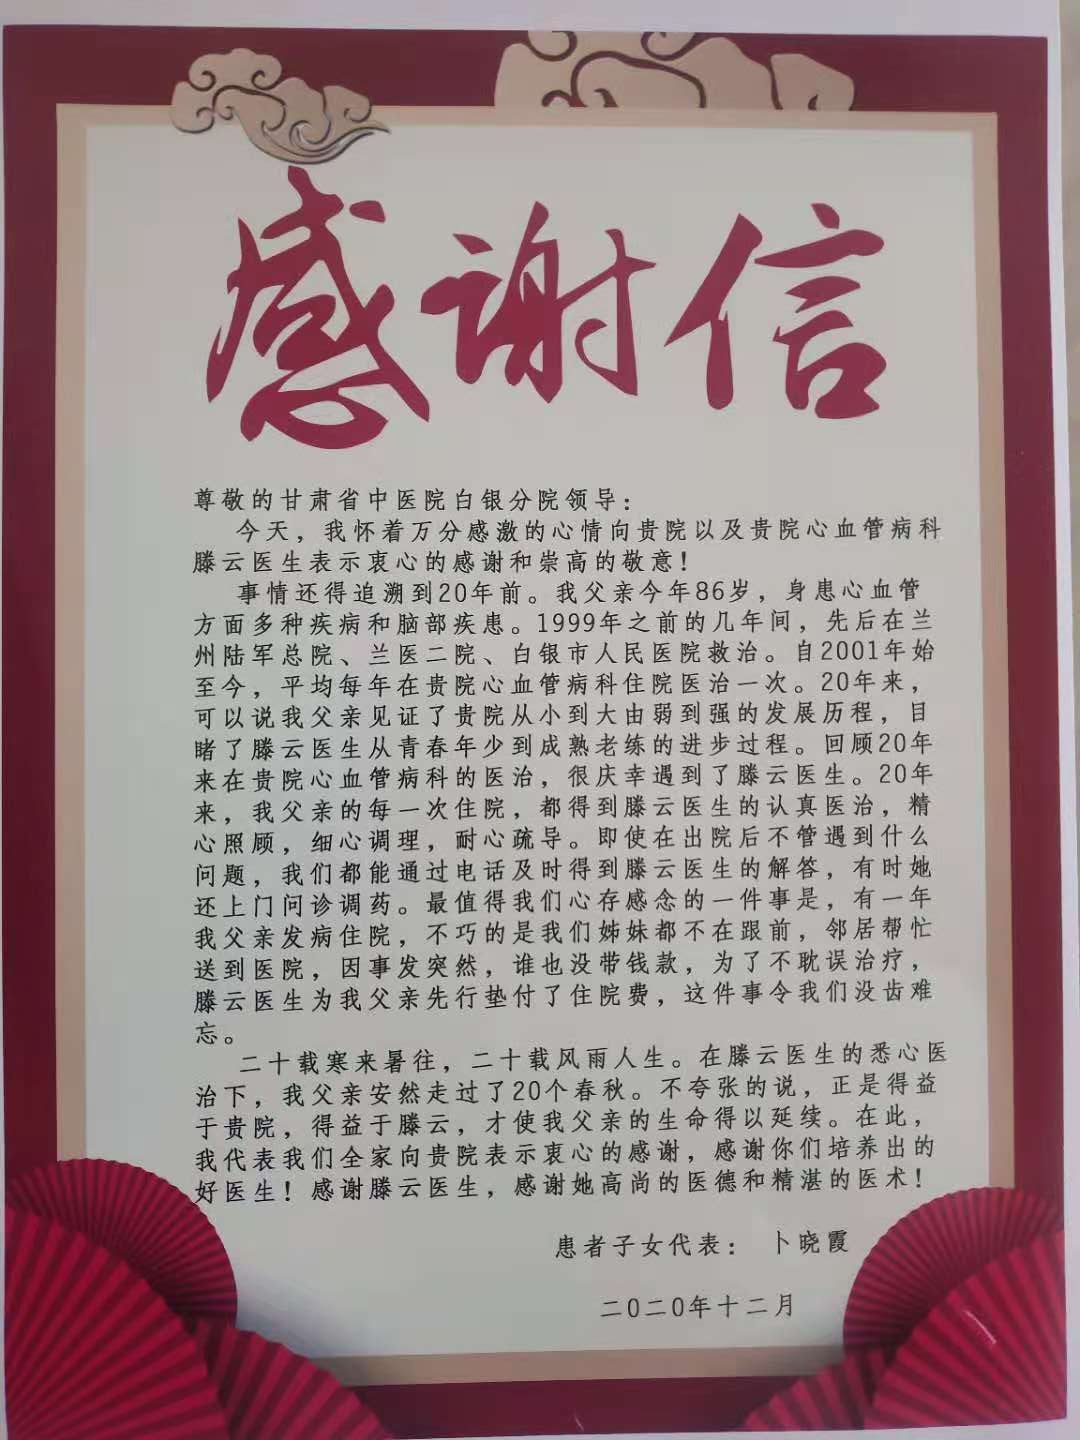 感谢信
尊敬的甘肃省中医院白银分院领导：
今天，我怀着万分感激的心情向贵院以及贵院心血管病科
滕云医生表示衷心的感谢和崇高的敬意！
事情还得追溯到20年前。我父亲今年86岁，身患心血管
方面多种疾病和脑部疾患。1999年之前的几年间，先后在兰
州陆军总院、兰医二院、白银市人民医院救治。自2001年始
至今，平均每年在贵院心血管病科住院医治一次。20年来，
可以说我父亲见证了贵院从小到大由弱到强的发展历程，目
睹了滕云医生从青春年少到成熟老练的进步过程。回顾20年
来在贵院心血管病科的医治，很庆幸遇到了滕云医生。20年
来，我父亲的每一次住院，都得到滕云医生的认真医治，精
心照顾，细心调理，耐心疏导。即使在出院后不管遇到什么
问题，我们都能通过电话及时得到滕云医生的解答，有时她
还上门问诊调药。最值得我们心存感念的一件事是，有一年
我父亲发病住院，不巧的是我们姊妹都不在跟前，邻居帮忙
送到医院，因事发突然，谁也没带钱款，为了不耽误治疗，
滕云医生为我父亲先行垫付了住院费，这件事令我们没齿难
忘。
二十载寒来暑往，二十载风雨人生。在滕云医生的悉心医
治下，我父亲安然走过了20个春秋。不夸张的说，正是得益
于贵院，得益于滕云，才使我父亲的生命得以延续。在此，
我代表我们全家向贵院表示衷心的感谢，感谢你们培养出的
好医生！感谢滕云医生，感谢她高尚的医德和精湛的医术！
患者子女代表： 卜晓霞
二0二0年十二月